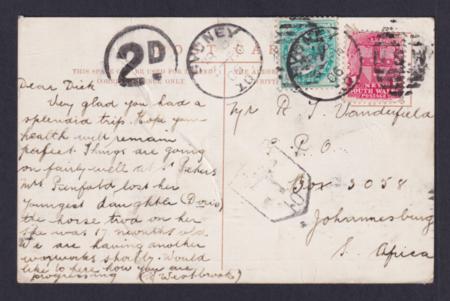 POST CARD
2D
SYDNEY
NEW SOUTH WALES
POSTAGE
THIS SPACE MAY BE USED FOR
Dear Dick
Very glad you had a
splendid trip. Hope your
health will remain
perfect. Things are going
on fairly well at St Peters
Mrs Penfold lost her
youngest daughter (Doris)
the horse trod on her
she was 17 months old.
We are having another
shortly. Would
like to here how you are
progressing (Westbrook)
R. J. Vanderfield
G. P. O.
Box 3058
Johannesburg
S. Africa
T